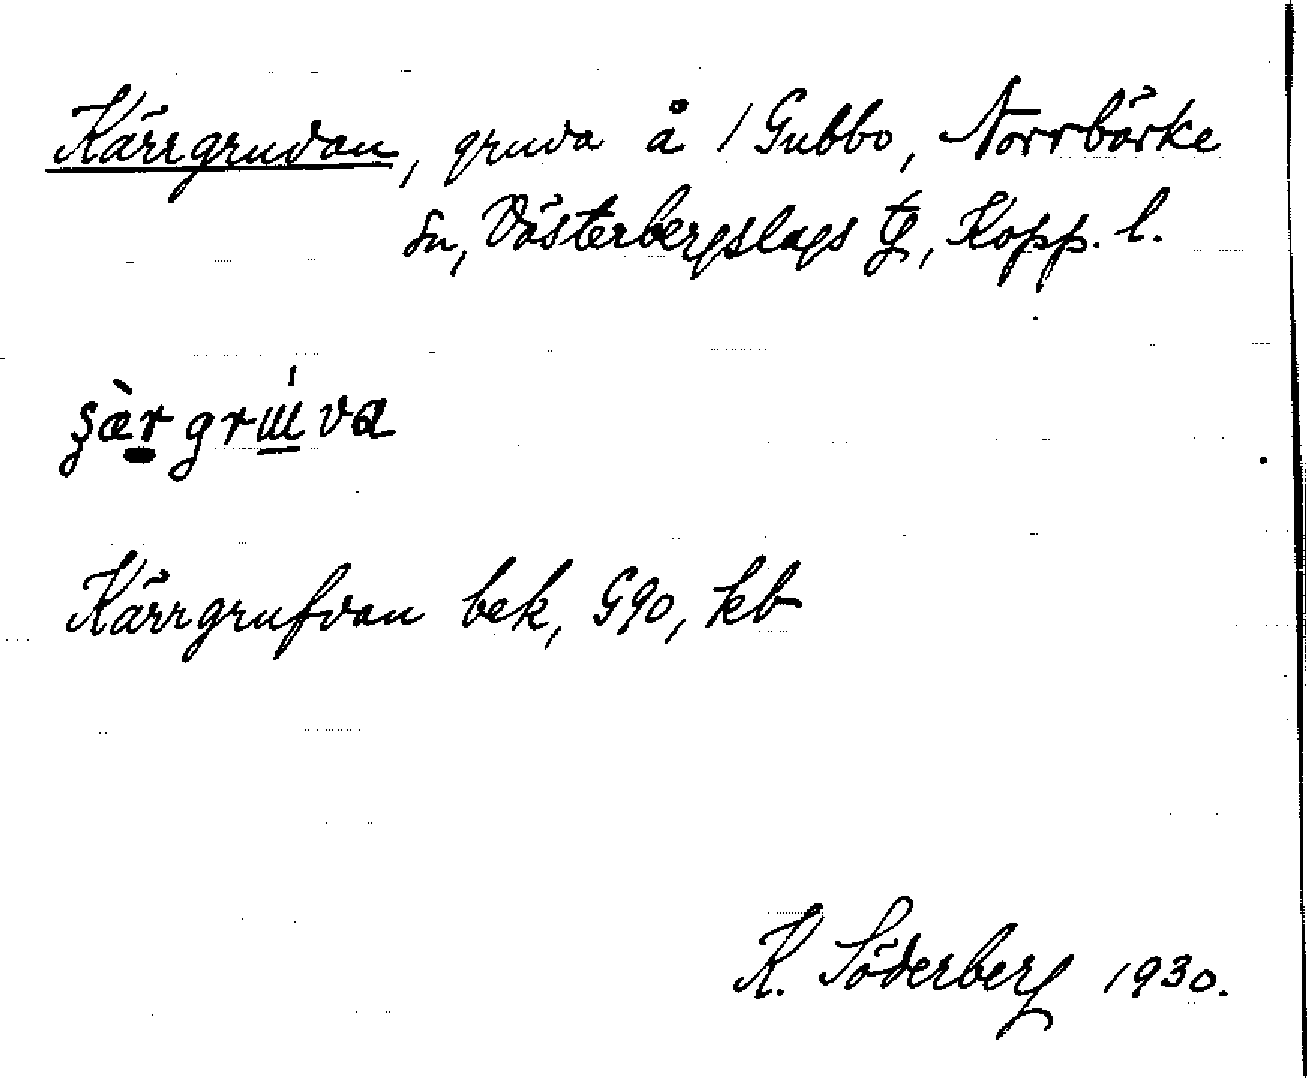 Kärrgruvan, gruva å 1 Gubbo, Norrbärke
sn, Västerbergslags tg, Kopp. l.
Kärrgrufvan bek, G90, kb
K. Söderberg 1930.